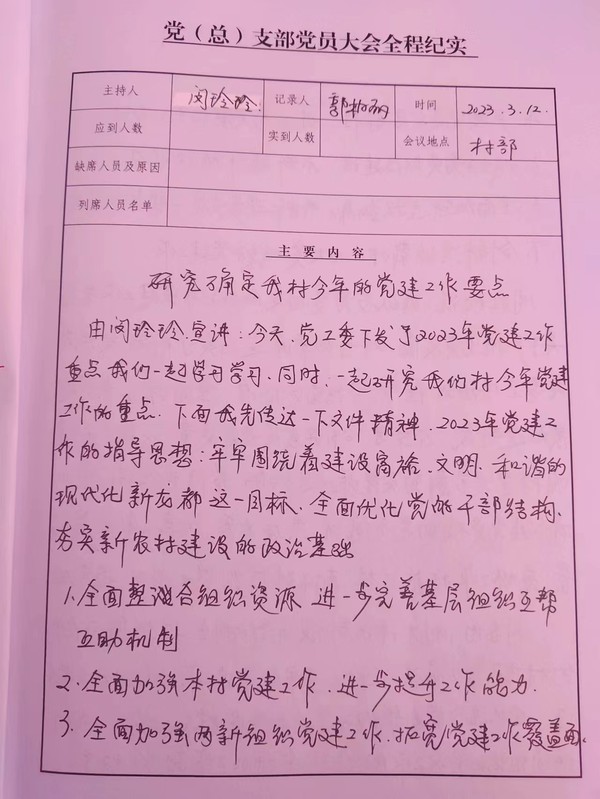 党（总）支部党员大会全程纪实
主持人 闵玲玲 记录人 郭 时间 2023.3.12.
应到人数 实到人数 会议地点 村部
缺席人员及原因
列席人员名单
主要内容
研究确定我村今年的党建工作要点
由闵玲玲宣讲：今天，党工委下发了2023年党建工作
重点我们一起学习学习、同时，一起研究我们村今年党建
工作的重点．下面我先传达一下文件精神．2023年党建工
作的指导思想：牢牢围绕着建设富裕、文明、和谐的
现代化新龙都这一目标、全面优化党的干部结构、
夯实新农村建设的政治基础
1.全面整合组织资源 进一步完善基层组织互帮
互助机制
2.全面加强本村党建工作．进一步提升工作能力．
3.全面加强两新组织党建工作．拓宽党建工作覆盖面．